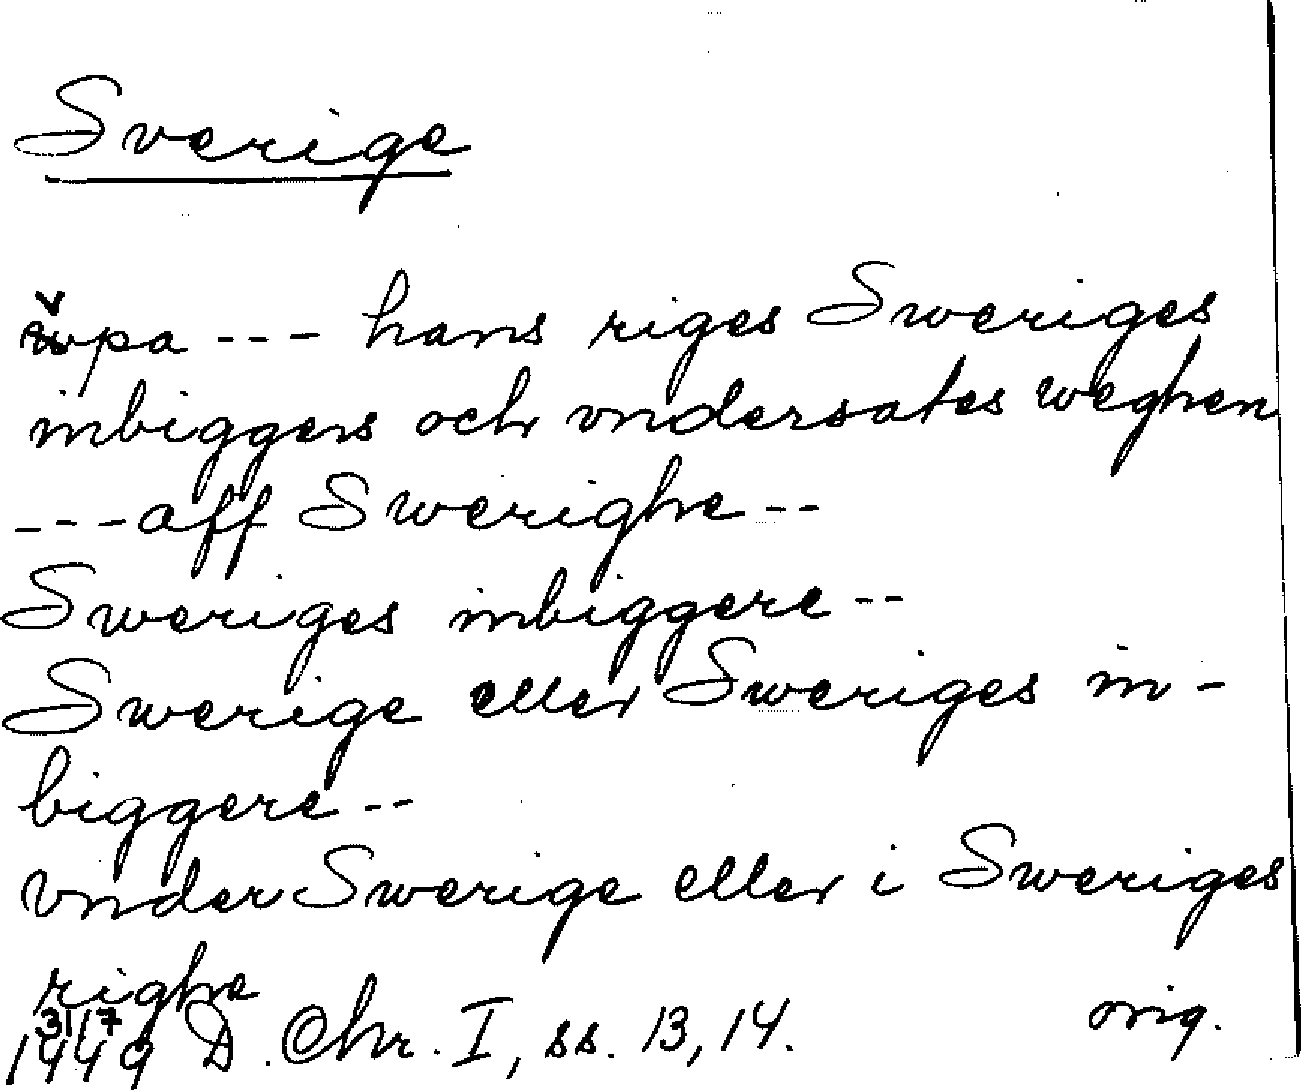 Sverige
vpa --- hans riges Sweriges
inbiggers och vndersates weghen
--- aff Swerighe --
Sweriges inbiggere --
Swerige eller Sweriges in-
biggere --
vnder Swerige eller i Sweriges
righe
31/7 1449 D. Chr. I, ss. 13, 14. orig.